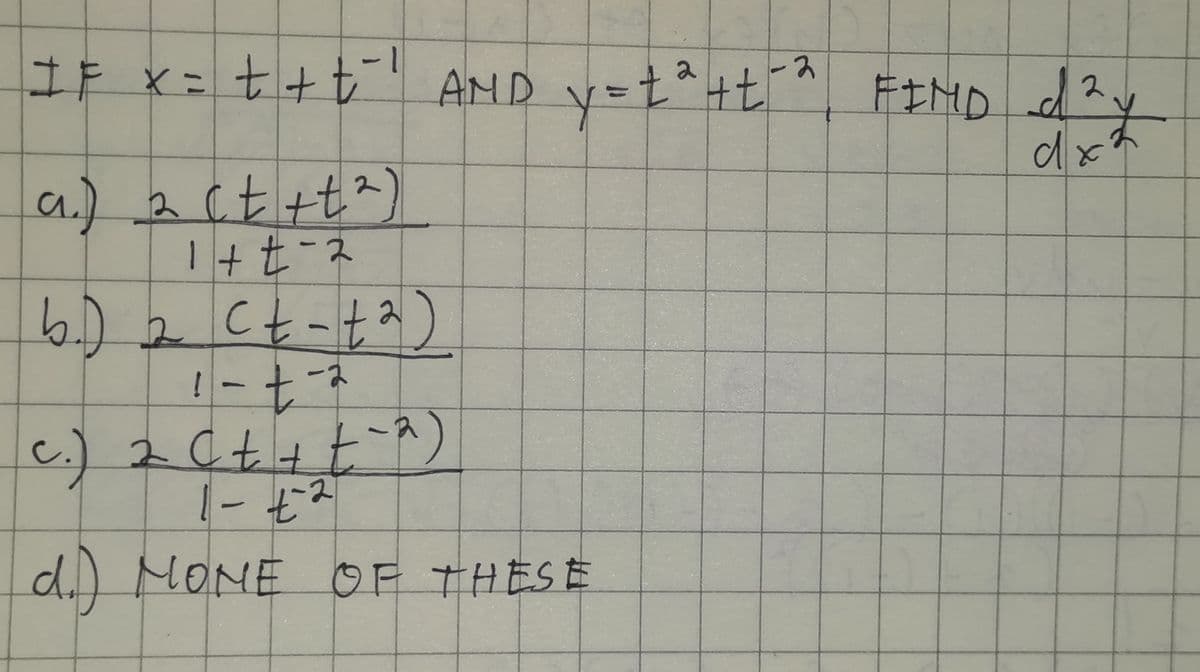 IF x = t + t⁻¹ AND y = t² + t⁻², FIND d²y/dx²
a.) 2 (t + t²) / 1 + t⁻²
b.) 2 (t - t²) / 1 - t⁻²
c.) 2 (t + t⁻²) / 1 - t⁻²
d.) NONE OF THESE